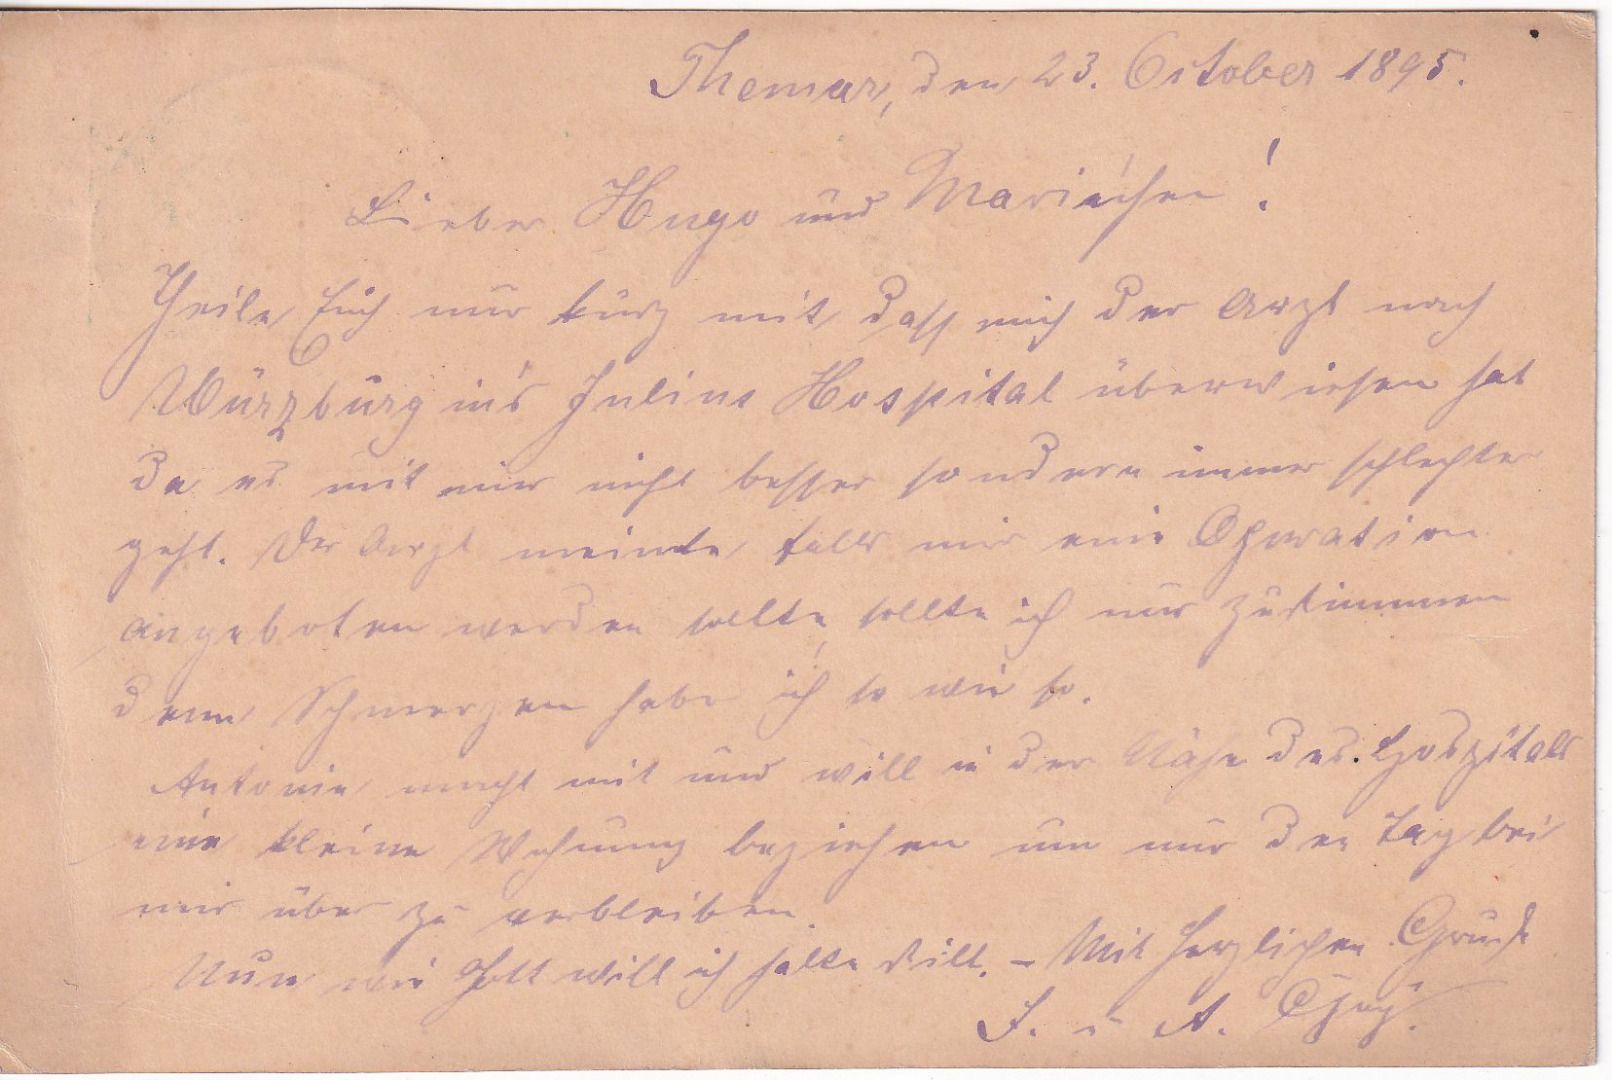 Themar, den 23. October 1895.
Lieber Hugo und Mariechen!
Theile Euch nur kurz mit, dass mich der Arzt nach
Würzburg in's Julius Hospital überwiesen hat
da es mit mir nicht besser sondern immer schlechter
geht. Der Arzt meinte, falls mir eine Operation
angeboten werden sollte, sollte ich nur zustimmen
denn Schmerzen habe ich so wie so.
Antonie macht mit und will in der Nähe des Hospitals
eine kleine Wohnung beziehen um nur den Tag bei
mir über zu verbleiben.
Nun wie Gott will ich halte still. – Mit herzlichen Gruß
J. u A.